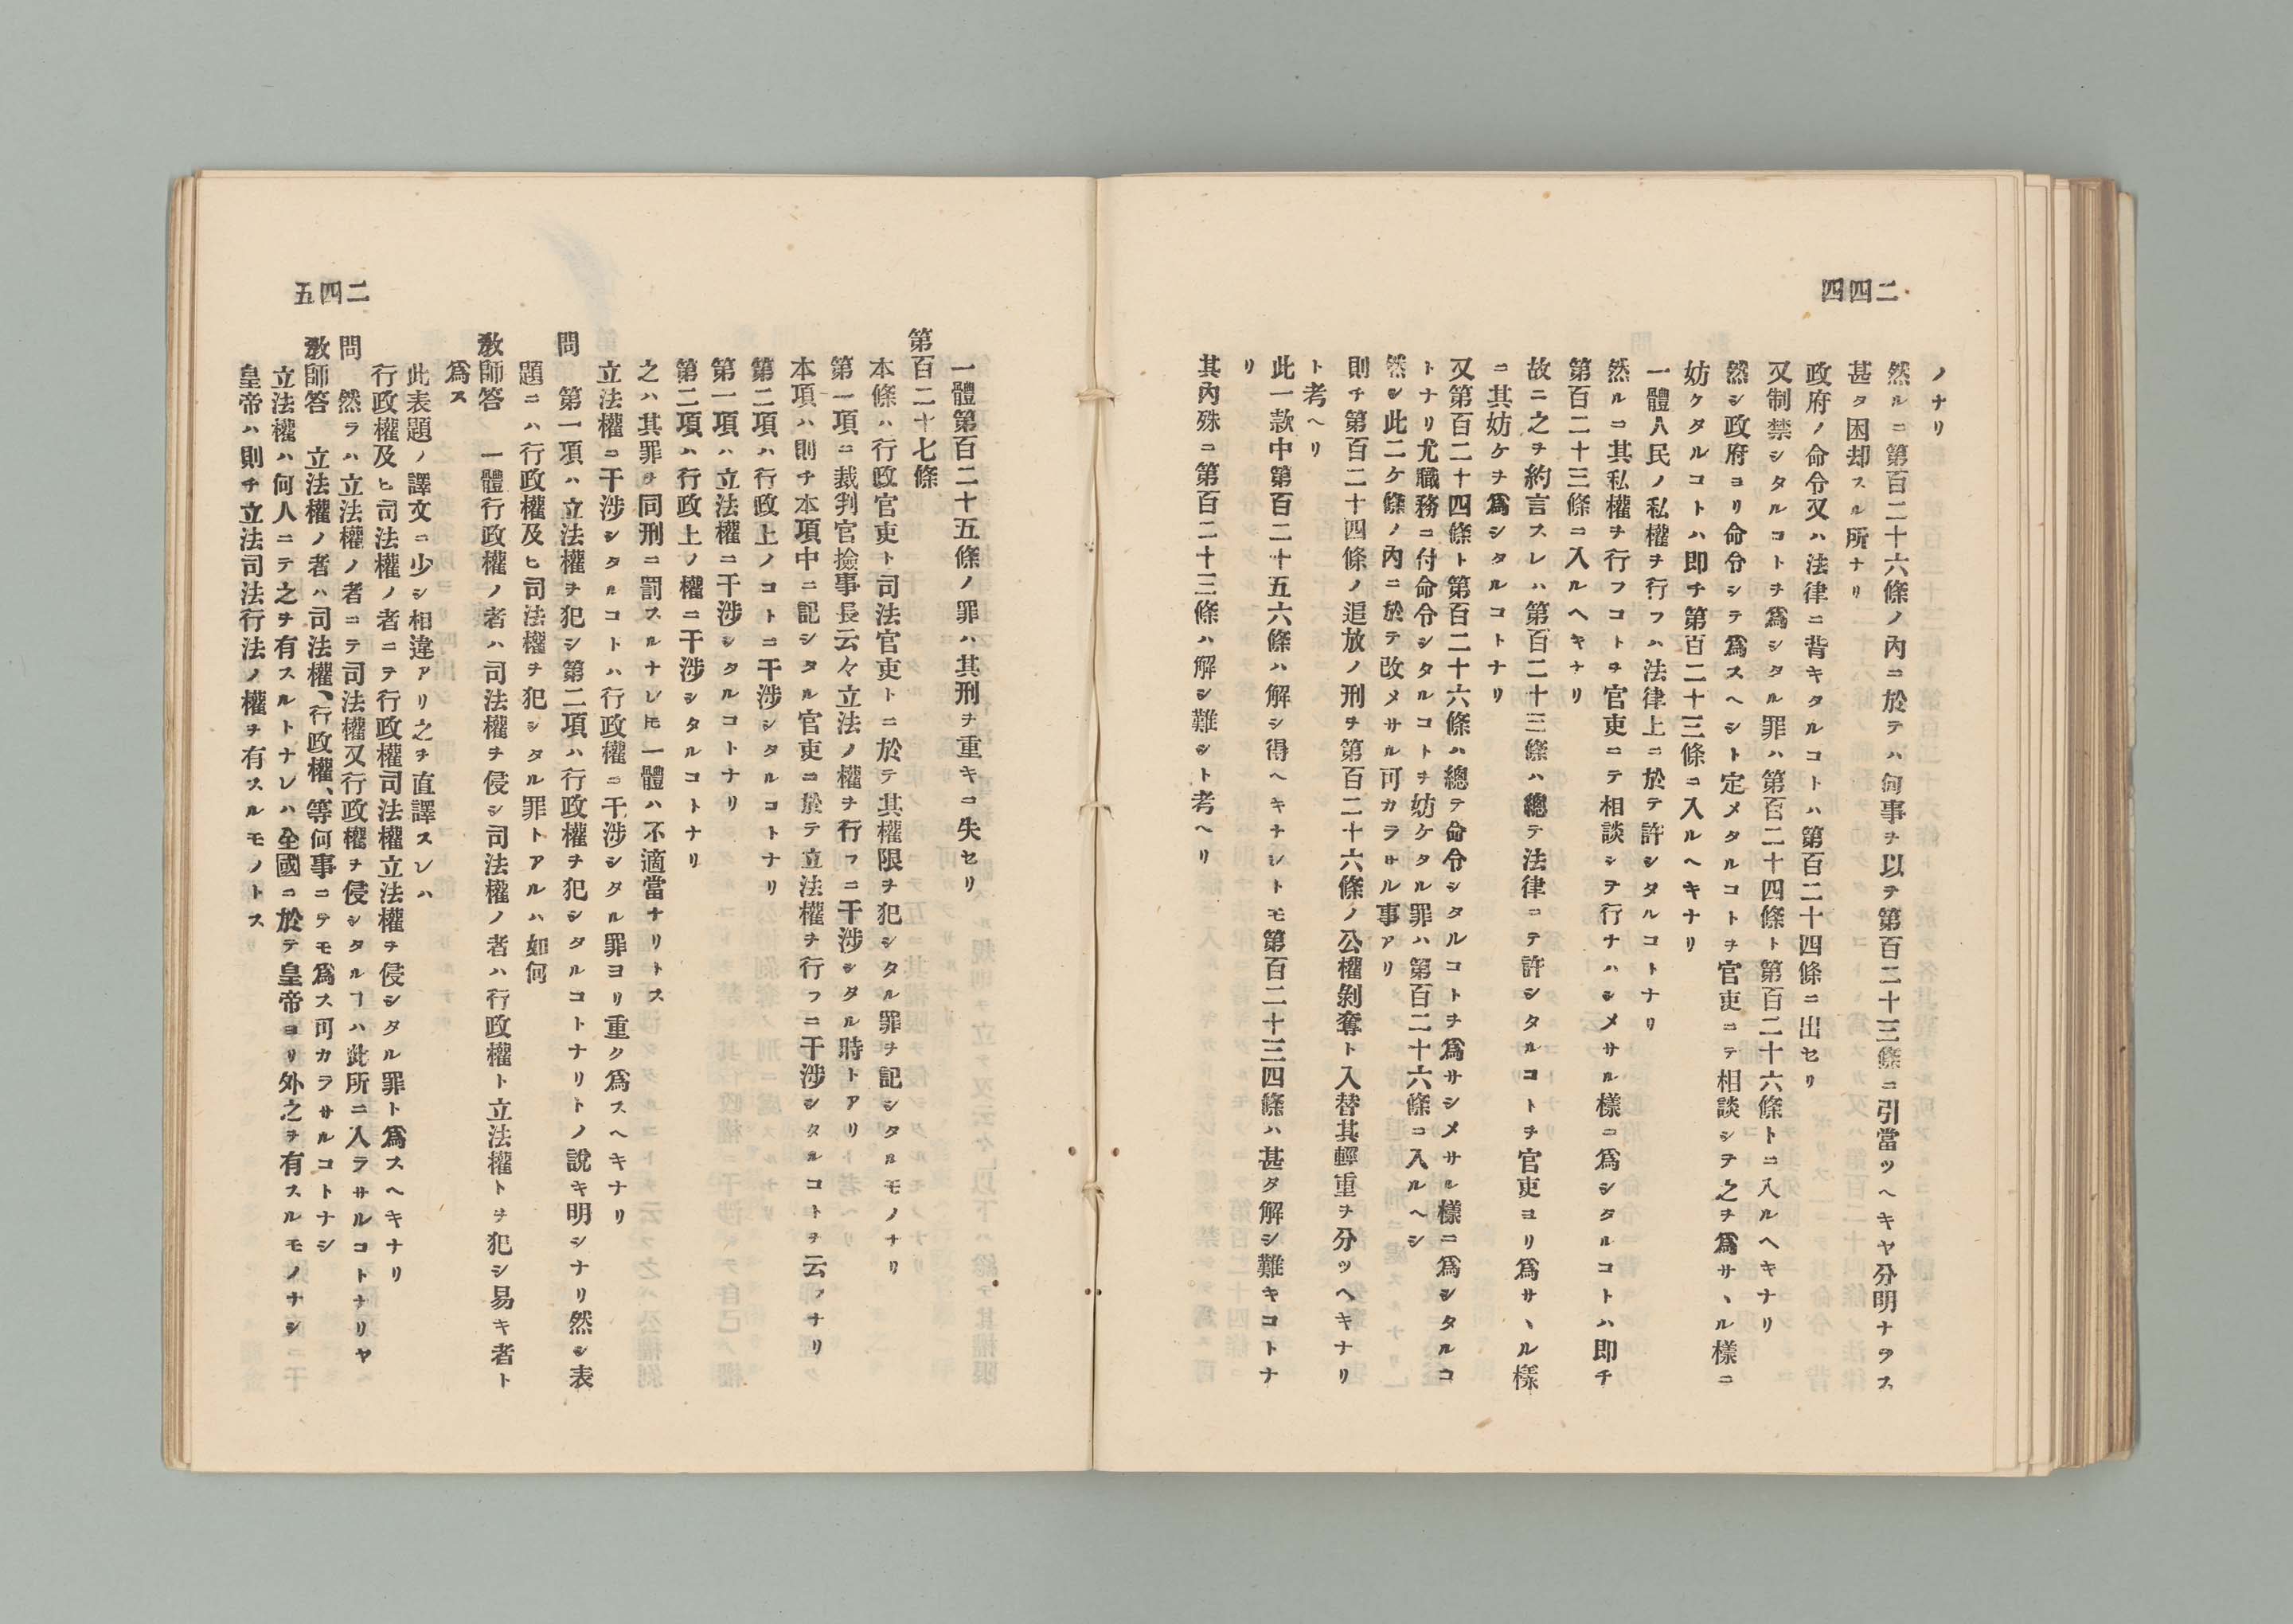 二四四
ノナリ
然ルニ第百二十六條ノ內ニ於テハ何事ヲ以テ第百二十三條ニ引當ツヘキヤ分明ナラス
甚タ困却スル所ナリ
政府ノ命令又ハ法律ニ背キタルコトハ第百二十四條ニ出セリ
又制禁シタルコトヲ爲シタル罪ハ第百二十四條ト第百二十六條トニ入ルヘキナリ
然シ政府ヨリ命令シテ爲スヘシト定メタルコトヲ官吏ニテ相談シテ之ヲ爲サヽル樣ニ
妨ケタルコトハ即チ第百二十三條ニ入ルヘキナリ
一體人民ノ私權ヲ行フハ法律上ニ於テ許シタルコトナリ
然ルニ其私權ヲ行フコトヲ官吏ニテ相談シテ行ナハシメサル樣ニ爲シタルコトハ即チ
第百二十三條ニ入ルヘキナリ
故ニ之ヲ約言スレハ第百二十三條ハ總テ法律ニテ許シタルコトヲ官吏ヨリ爲サヽル樣
ニ其妨ケヲ爲シタルコトナリ
又第百二十四條ト第百二十六條ハ總テ命令シタルコトヲ爲サシメサル樣ニ爲シタルコ
トナリ尤職務ニ付命令シタルコトヲ妨ケタル罪ハ第百二十六條ニ入ルヘシ
然シ此二ケ條ノ內ニ於テ改メサル可カラサル事アリ
則チ第百二十四條ノ追放ノ刑ヲ第百二十六條ノ公權剝奪ト入替其輕重ヲ分ツヘキナリ
ト考ヘリ
此一款中第百二十五六條ハ解シ得ヘキナレトモ第百二十三四條ハ甚タ解シ難キコトナ
リ
其內殊ニ第百二十三條ハ解シ難シト考ヘリ
二四五
一體第百二十五條ノ罪ハ其刑ヲ重キニ失セリ
第百二十七條
本條ハ行政官吏ト司法官吏トニ於テ其權限ヲ犯シタル罪ヲ記シタルモノナリ
第一項ニ裁判官撿事長云々立法ノ權ヲ行フニ干涉シタル時トアリ
本項ハ則チ本項中ニ記シタル官吏ニ於テ立法權ヲ行フニ干涉シタルコトヲ云フナリ
第二項ハ行政上ノコトニ干涉シタルコトナリ
第一項ハ立法權ニ干涉シタルコトナリ
第二項ハ行政上ノ權ニ干涉シタルコトナリ
之ハ其罪ヲ同刑ニ罰スルナレ𪜈一體ハ不適當ナリトス
立法權ニ干涉シタルコトハ行政權ニ干涉シタル罪ヨリ重ク爲スヘキナリ
問　第一項ハ立法權ヲ犯シ第二項ハ行政權ヲ犯シタルコトナリトノ說キ明シナリ然シ表
題ニハ行政權及ヒ司法權ヲ犯シタル罪トアルハ如何
敎師答　一體行政權ノ者ハ司法權ヲ侵シ司法權ノ者ハ行政權ト立法權トヲ犯シ易キ者ト
爲ス
此表題ノ譯文ニ少シ相違アリ之ヲ直譯スレハ
行政權及ヒ司法權ノ者ニテ行政權司法權立法權ヲ侵シタル罪ト爲スヘキナリ
問　然ラハ立法權ノ者ニテ司法權又行政權ヲ侵シタルヿハ此所ニ入ラサルコトナリヤ
敎師答　立法權ノ者ハ司法權、行政權、等何事ニテモ爲ス可カラサルコトナシ
立法權ハ何人ニテ之ヲ有スルトナレハ全國ニ於テ皇帝ヨリ外之ヲ有スルモノナシ
皇帝ハ則チ立法司法行法ノ權ヲ有スルモノトス